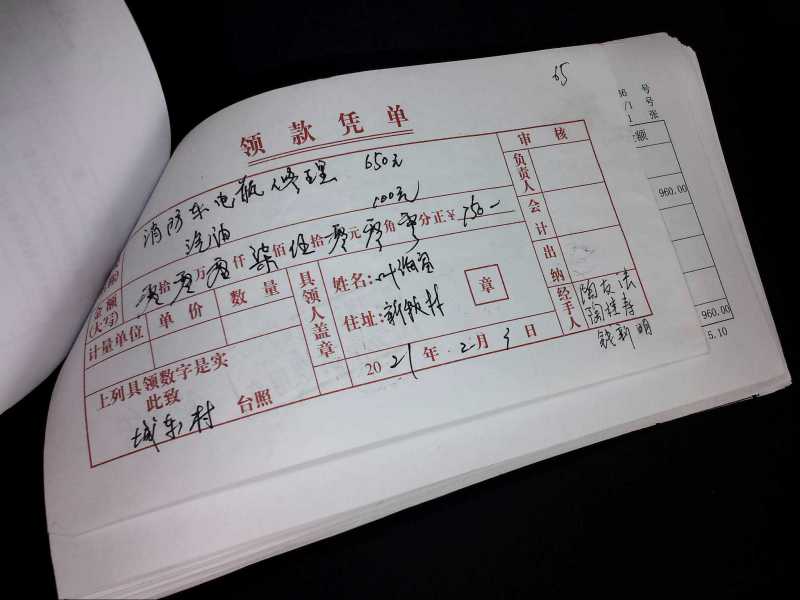 65
领款凭单
消防车电瓶修理 650元
汽油 100元
金额(大写) 零拾零万零仟柒佰伍拾零元零角零分正¥750—
计量单位 单价 数量
上列具领数字是实
此致
城东村 台照
具领人盖章
姓名:叶伯贤
住址:新颖村
章
2021年2月3日
审核
负责人
会计
出纳
经手人
陶友法
陶桂寿
钱新明
号
号
张
额
960.00
960.00
5.10